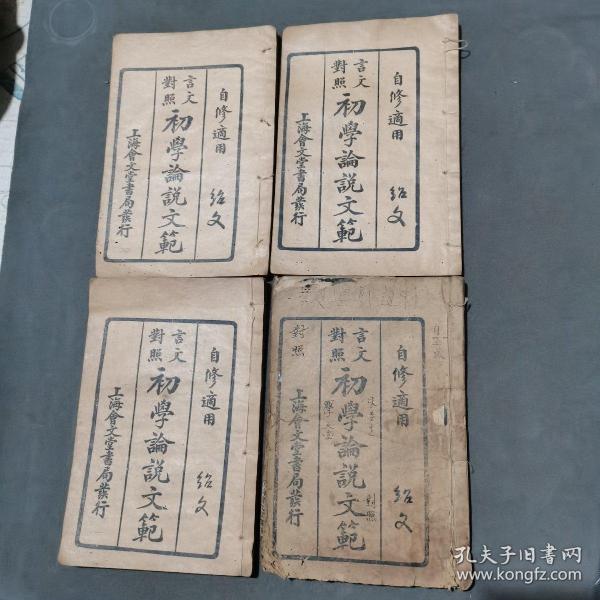 自修適用
紹文
言文
對照
初學論說文範
上海會文堂書局發行
自修適用
紹文
言文
對照
初學論說文範
上海會文堂書局發行
自修適用
紹文
言文
對照
初學論說文範
上海會文堂書局發行
自修適用
紹文
言文
對照
初學論說文範
上海會文堂書局發行
對照
對照
孔夫子旧书网
www.kongfz.com